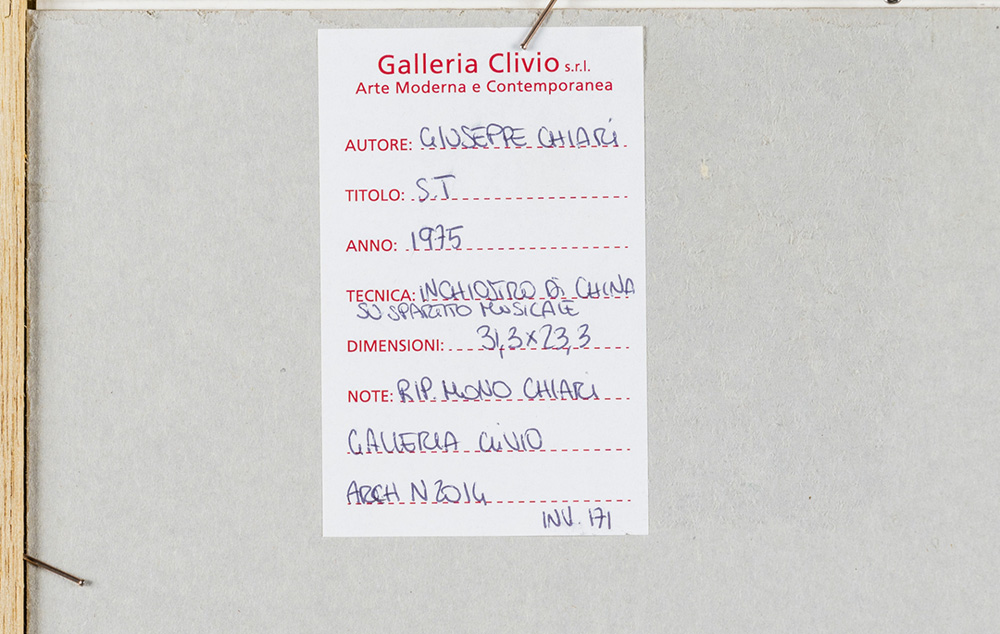 Galleria Clivio s.r.l.
Arte Moderna e Contemporanea
AUTORE: GIUSEPPE CHIARI
TITOLO: S.T
ANNO: 1975
TECNICA: INCHIOSTRO DI CHINA
SU SPARTITO MUSICALE
DIMENSIONI: 31,3x23,3
NOTE: RIP. MONO CHIARI
GALLERIA CLIVIO
ARCH N 2014
INV. 171